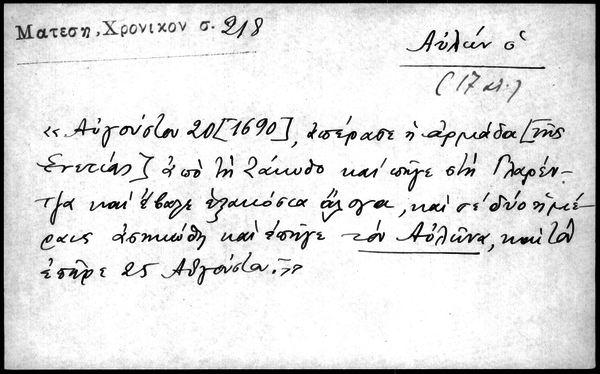 Ματεση, Χρονικον σ. 218
Αὐλών ὁ
(17 αι.)
«Αὐγούστου 20 [1690], ἀπέρασε ἡ ἀρμάδα [τῆς
Ενετίας] ἀπὸ τὴ Ζάκυθο καὶ πῆγε στὴ Γλαρέν-
τζα καὶ ἔβαλε ἑξακόσια ἄλογα, καὶ σὲ δύο ἡμέ-
ραις ἀσηκώθη καὶ ἐπῆγε τὸν Αὐλῶνα, καὶ τὸν
ἐπῆρε 25 Αὐγούστου.»